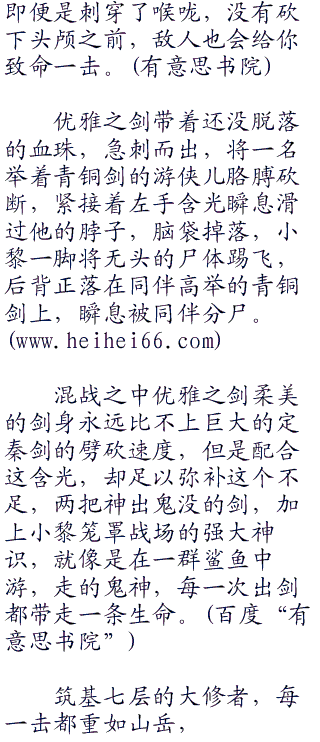 即便是刺穿了喉咙，没有砍
下头颅之前，敌人也会给你
致命一击。(有意思书院)
优雅之剑带着还没脱落
的血珠，急刺而出，将一名
举着青铜剑的游侠儿胳膊砍
断，紧接着左手含光瞬息滑
过他的脖子，脑袋掉落，小
黎一脚将无头的尸体踢飞，
后背正落在同伴高举的青铜
剑上，瞬息被同伴分尸。
(www.heihei66.com)
混战之中优雅之剑柔美
的剑身永远比不上巨大的定
秦剑的劈砍速度，但是配合
这含光，却足以弥补这个不
足，两把神出鬼没的剑，加
上小黎笼罩战场的强大神
识，就像是在一群鲨鱼中
游，走的鬼神，每一次出剑
都带走一条生命。(百度“有
意思书院”)
筑基七层的大修者，每
一击都重如山岳，